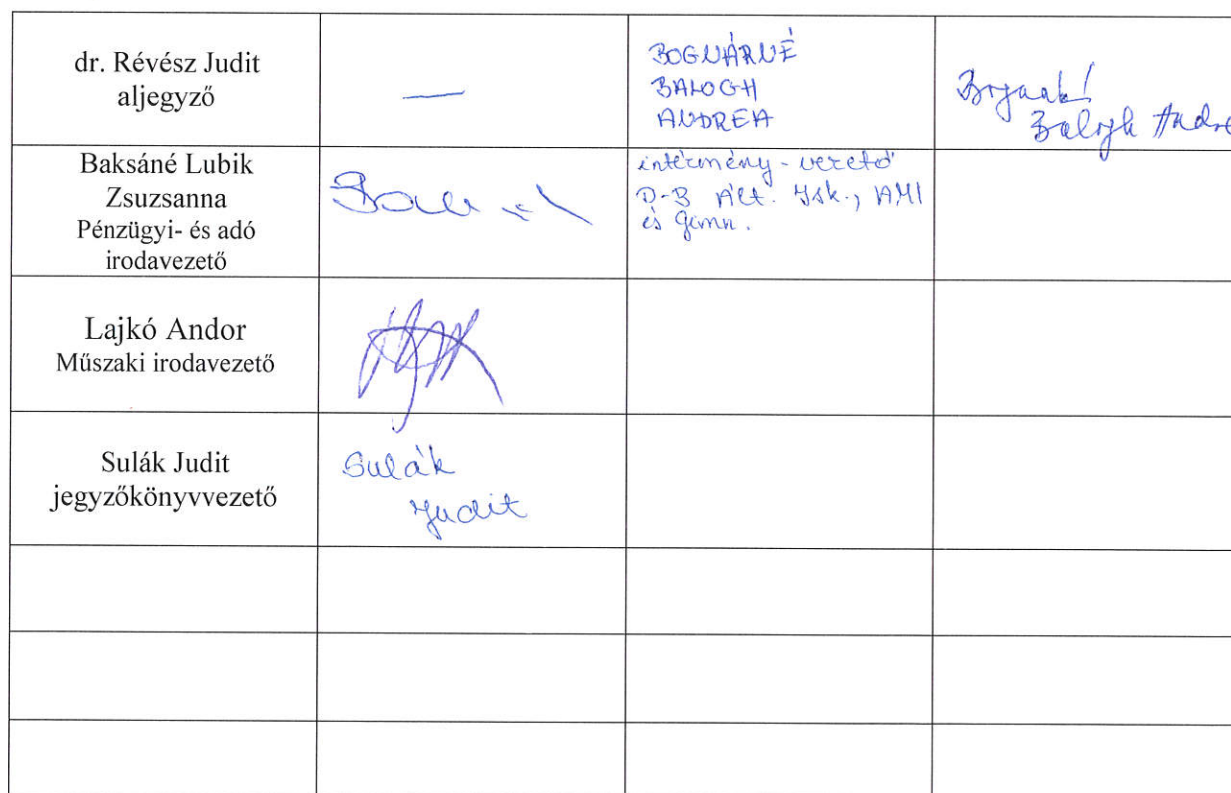 dr. Révész Judit
aljegyző
—
BOGNÁRNÉ
BALOGH
ANDREA
Balogh Andre
Baksáné Lubik
Zsuzsanna
Pénzügyi- és adó
irodavezető
intézmény-vezető
D-B Ált. Isk., AMI
és Gimn.
Lajkó Andor
Műszaki irodavezető
Sulák Judit
jegyzőkönyvvezető
Sulák
Judit